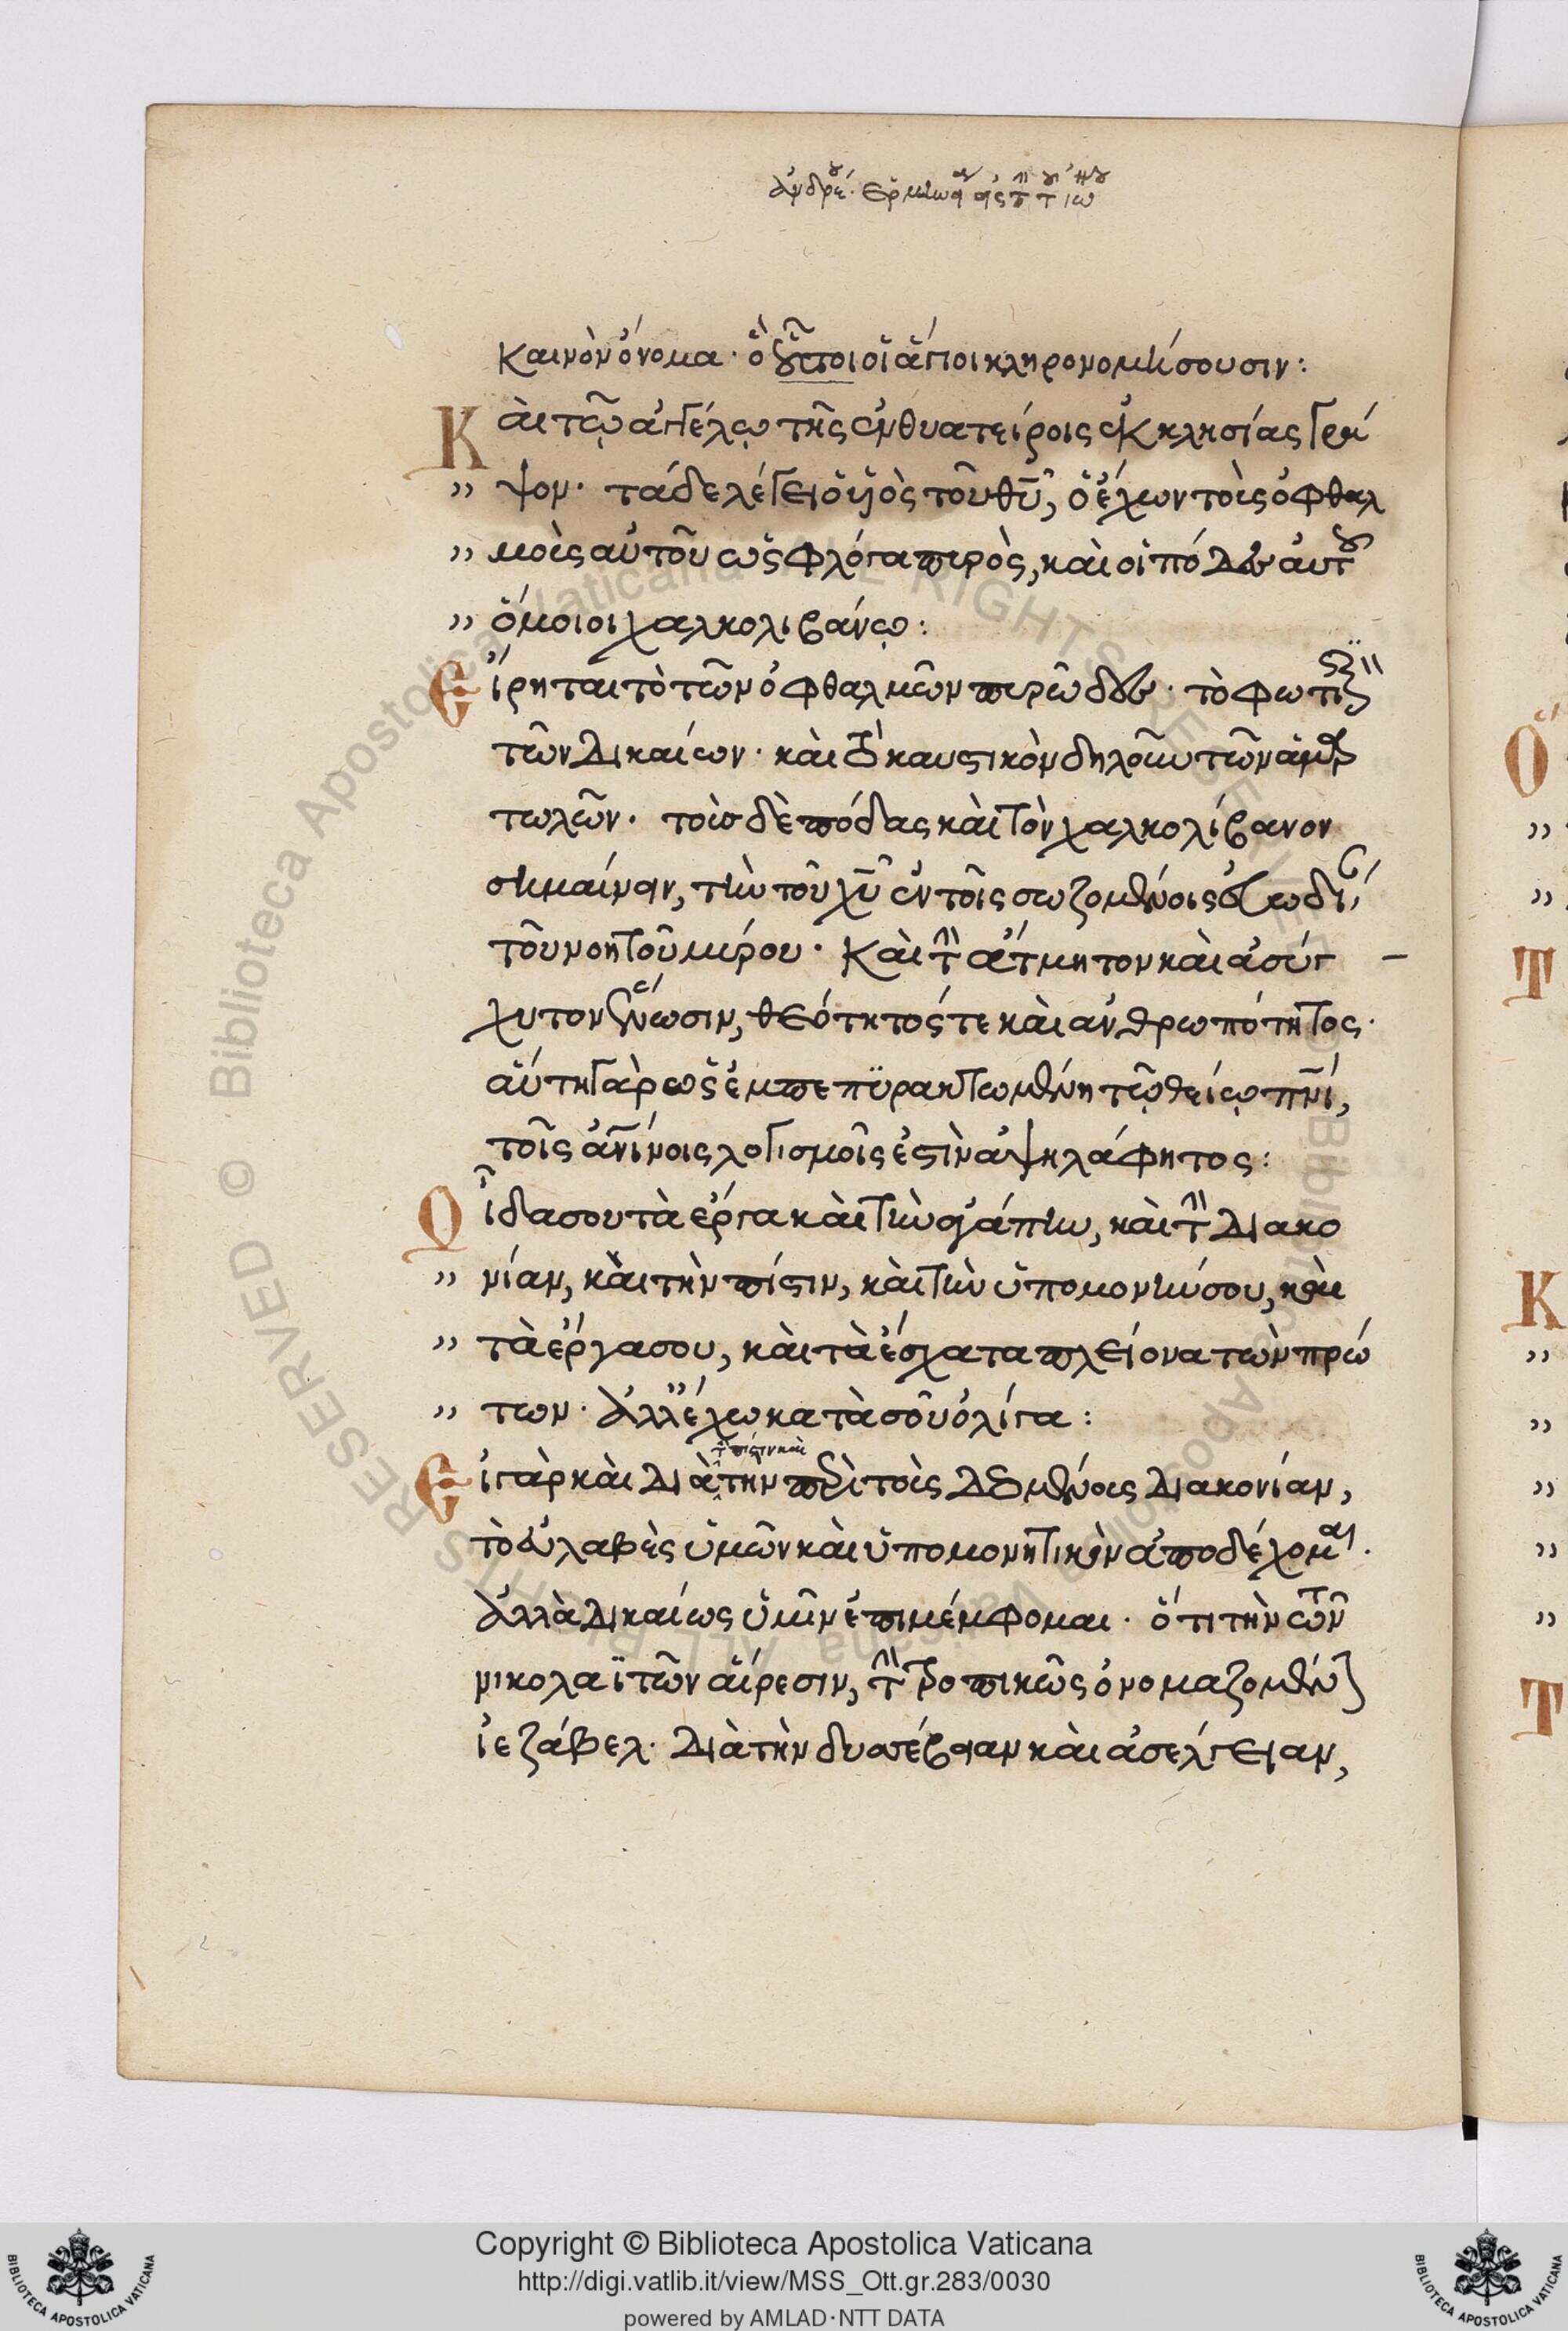 καινὸν ὄνομα· ὃ οὗτοι οἱ ἅγιοι κληρονομήσουσιν:
Καὶ τῷ ἀγγέλῳ τῆς ἐν θυατείροις ἐκκλησίας γρά
" ψον· τάδε λέγει ὁ υἱὸς τοῦ θυ, ὁ ἔχων τοὺς ὀφθαλ
" μοὺς αὐτοῦ ὡς φλόγα πυρὸς, καὶ οἱ πόδες αὐτοῦ
" ὅμοιοι χαλκολιβάνῳ:
Εἴρηται τὸ τῶν ὀφθαλμῶν πυρῶδες· τὸ φωτις
τῶν δικαίων· καὶ τὸ καυστικὸν δηλοῦν τῶν ἁμαρ
τωλῶν· τοὺς δὲ πόδας καὶ τὸν χαλκολίβανον
σημαίνειν, τὴν τοῦ χυ ἐν τοῖς σωζομένοις εὐωδίαν
τοῦ νοητοῦ μύρου· Καὶ τὴν ἄτμητον καὶ ἀσύγ
χυτον ἕνωσιν, θεότητός τε καὶ ἀνθρωπότητος·
αὕτη γὰρ ὡς ἐμπεπυρακτωμένη τῷ θείῳ πνι,
τοῖς ἀνίνοις λογισμοῖς ἐστὶν ἀψηλάφητος:
Οἶδα σου τὰ ἔργα καὶ τὴν ἀγάπην, καὶ τὴν διακο
" νίαν, καὶ τὴν πίστιν, καὶ τὴν ὑπομονήν σου, καὶ
" τὰ ἔργα σου, καὶ τὰ ἔσχατα πλείονα τῶν πρώ
" των· ἀλλ' ἔχω κατὰ σοῦ ὀλίγα:
τὴν πίστιν καὶ
Εἰ γὰρ καὶ διὰ τὴν περὶ τοὺς δεομένους διακονίαν,
τὸ εὐλαβὲς ὑμῶν καὶ ὑπομονητικὸν ἀποδέχομαι·
ἀλλὰ δικαίως ὑμῖν ἐπιμέμφομαι· ὅτι τὴν τῶν
νικολαϊτῶν αἵρεσιν, τὴν τροπικῶς ὀνομαζομένην
ἰεζάβελ· διὰ τὴν δυσσέβειαν καὶ ἀσέλγειαν,
Copyright © Biblioteca Apostolica Vaticana
http://digi.vatlib.it/view/MSS_Ott.gr.283/0030
powered by AMLAD·NTT DATA
BIBLIOTECA APOSTOLICA VATICANA
BIBLIOTECA APOSTOLICA VATICANA